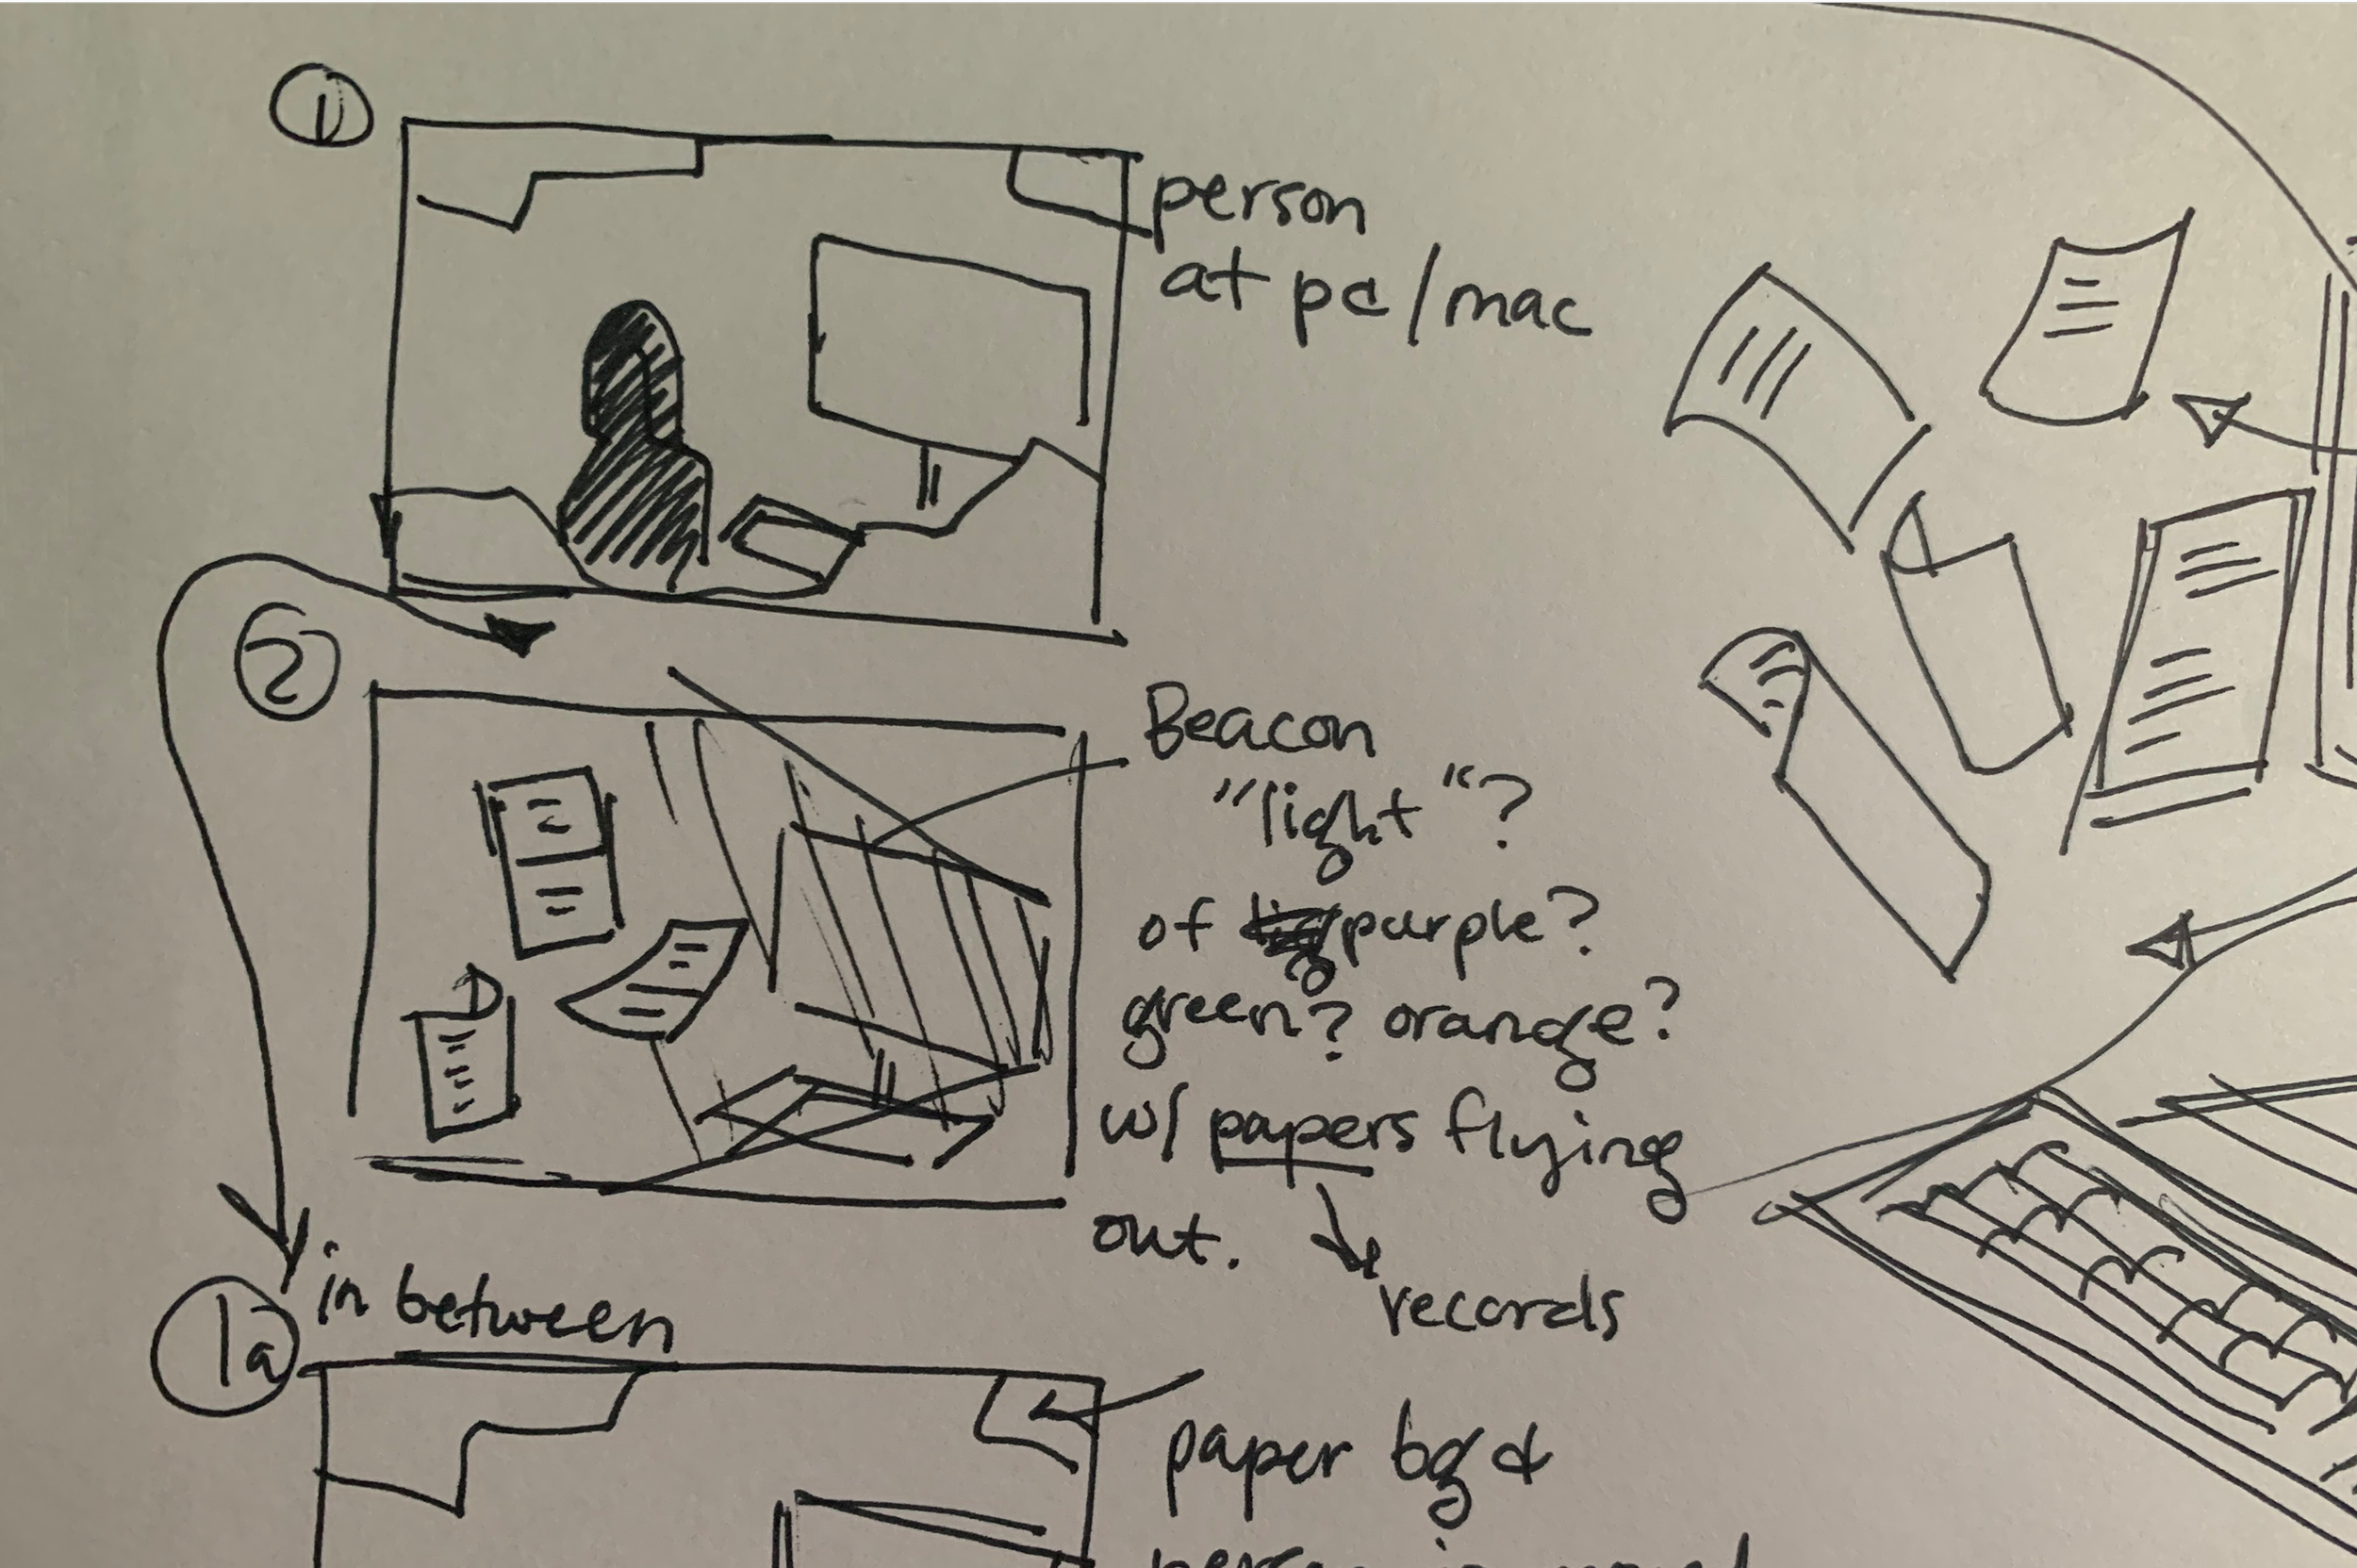 1
person
at pc/mac
2
Beacon
"light"?
of purple?
green? orange?
w/ papers flying
out.
records
1a in between
paper bgd